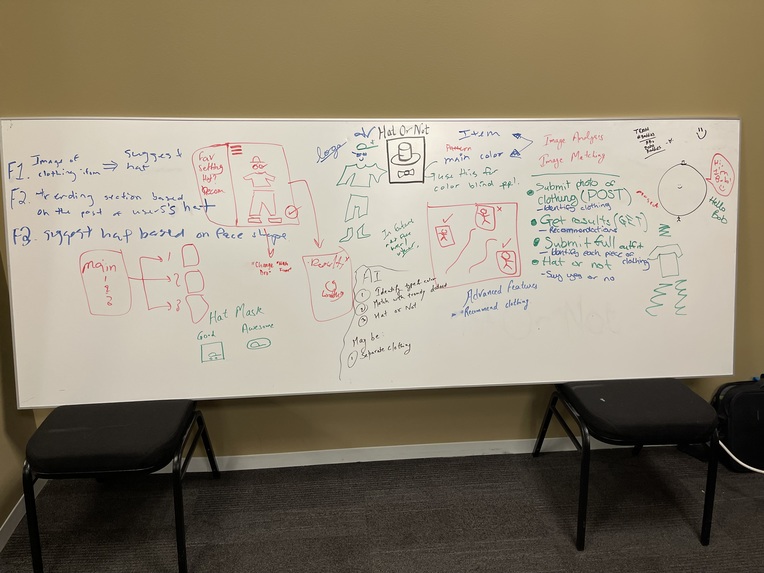 F1. Image of clothing item ⇒ suggest hat
F2. trending section based
on the past users's hat
F2. suggest hat based on face shape
Main
1
2
3
1
2
3
Hat Mask
Good
Awesome
Fav
Setting
"Change
Results
logo
Hat Or Not
Item
Pattern
main color
use this for
color blind ppl!
In future
AI
① Identify type & color
② Match with trendy dataset
③ Hat or Not
May be:
① Separate clothing
Advanced Features
Recommend clothing
Image Analysis
Image Matching
Submit photo of
clothing (POST)
- Identify clothing
Get results (GET)
- Recommendations
Submit full outfit
- Identify each piece of
clothing
Hat or not
- Say yes or no
TEAM
Hi,
I'm
Bob!
Hello
Bob